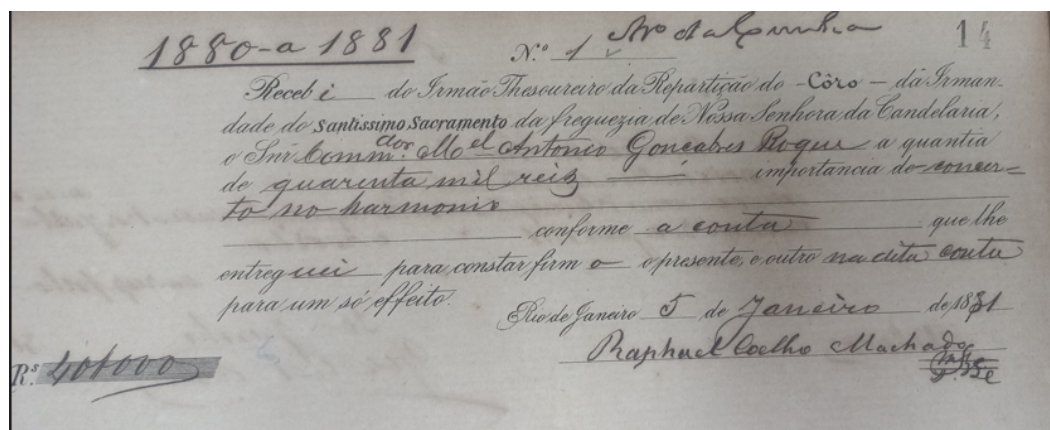 1880-a 1881 N.º 1 Nro da Cunha 14
Recebi do Irmão Thesoureiro da Repartição do -Côro- da Irman-
dade do Santissimo Sacramento da freguezia de Nossa Senhora da Candelaria,
o Snr Commdor. Mel Antonio Gonçalves Roque a quantia
de quarenta mil reis importancia do concer=
to no harmonio
conforme a conta que lhe
entreguei para constar firmo o presente, e outro na dita conta
para um só effeito.
Rio de Janeiro 5 de Janeiro de 1881
Raphael Coelho Machado
R.s 40$000